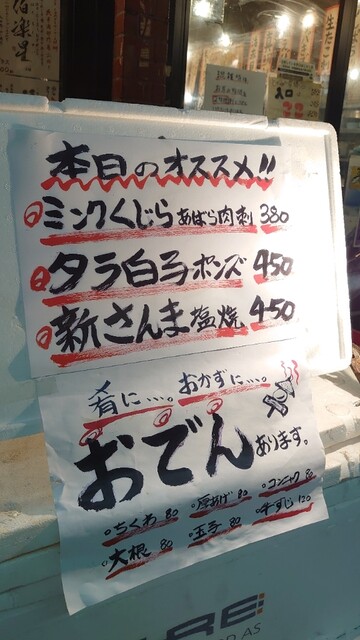 本日のオススメ!!
ミンクくじら あばら肉刺 380
タラ白子ポンズ 450
新さんま塩焼 450
肴に…。おかずに…。
おでん あります。
ちくわ 80 厚あげ 80 コンニャク 80
大根 80 玉子 80 牛すじ 120